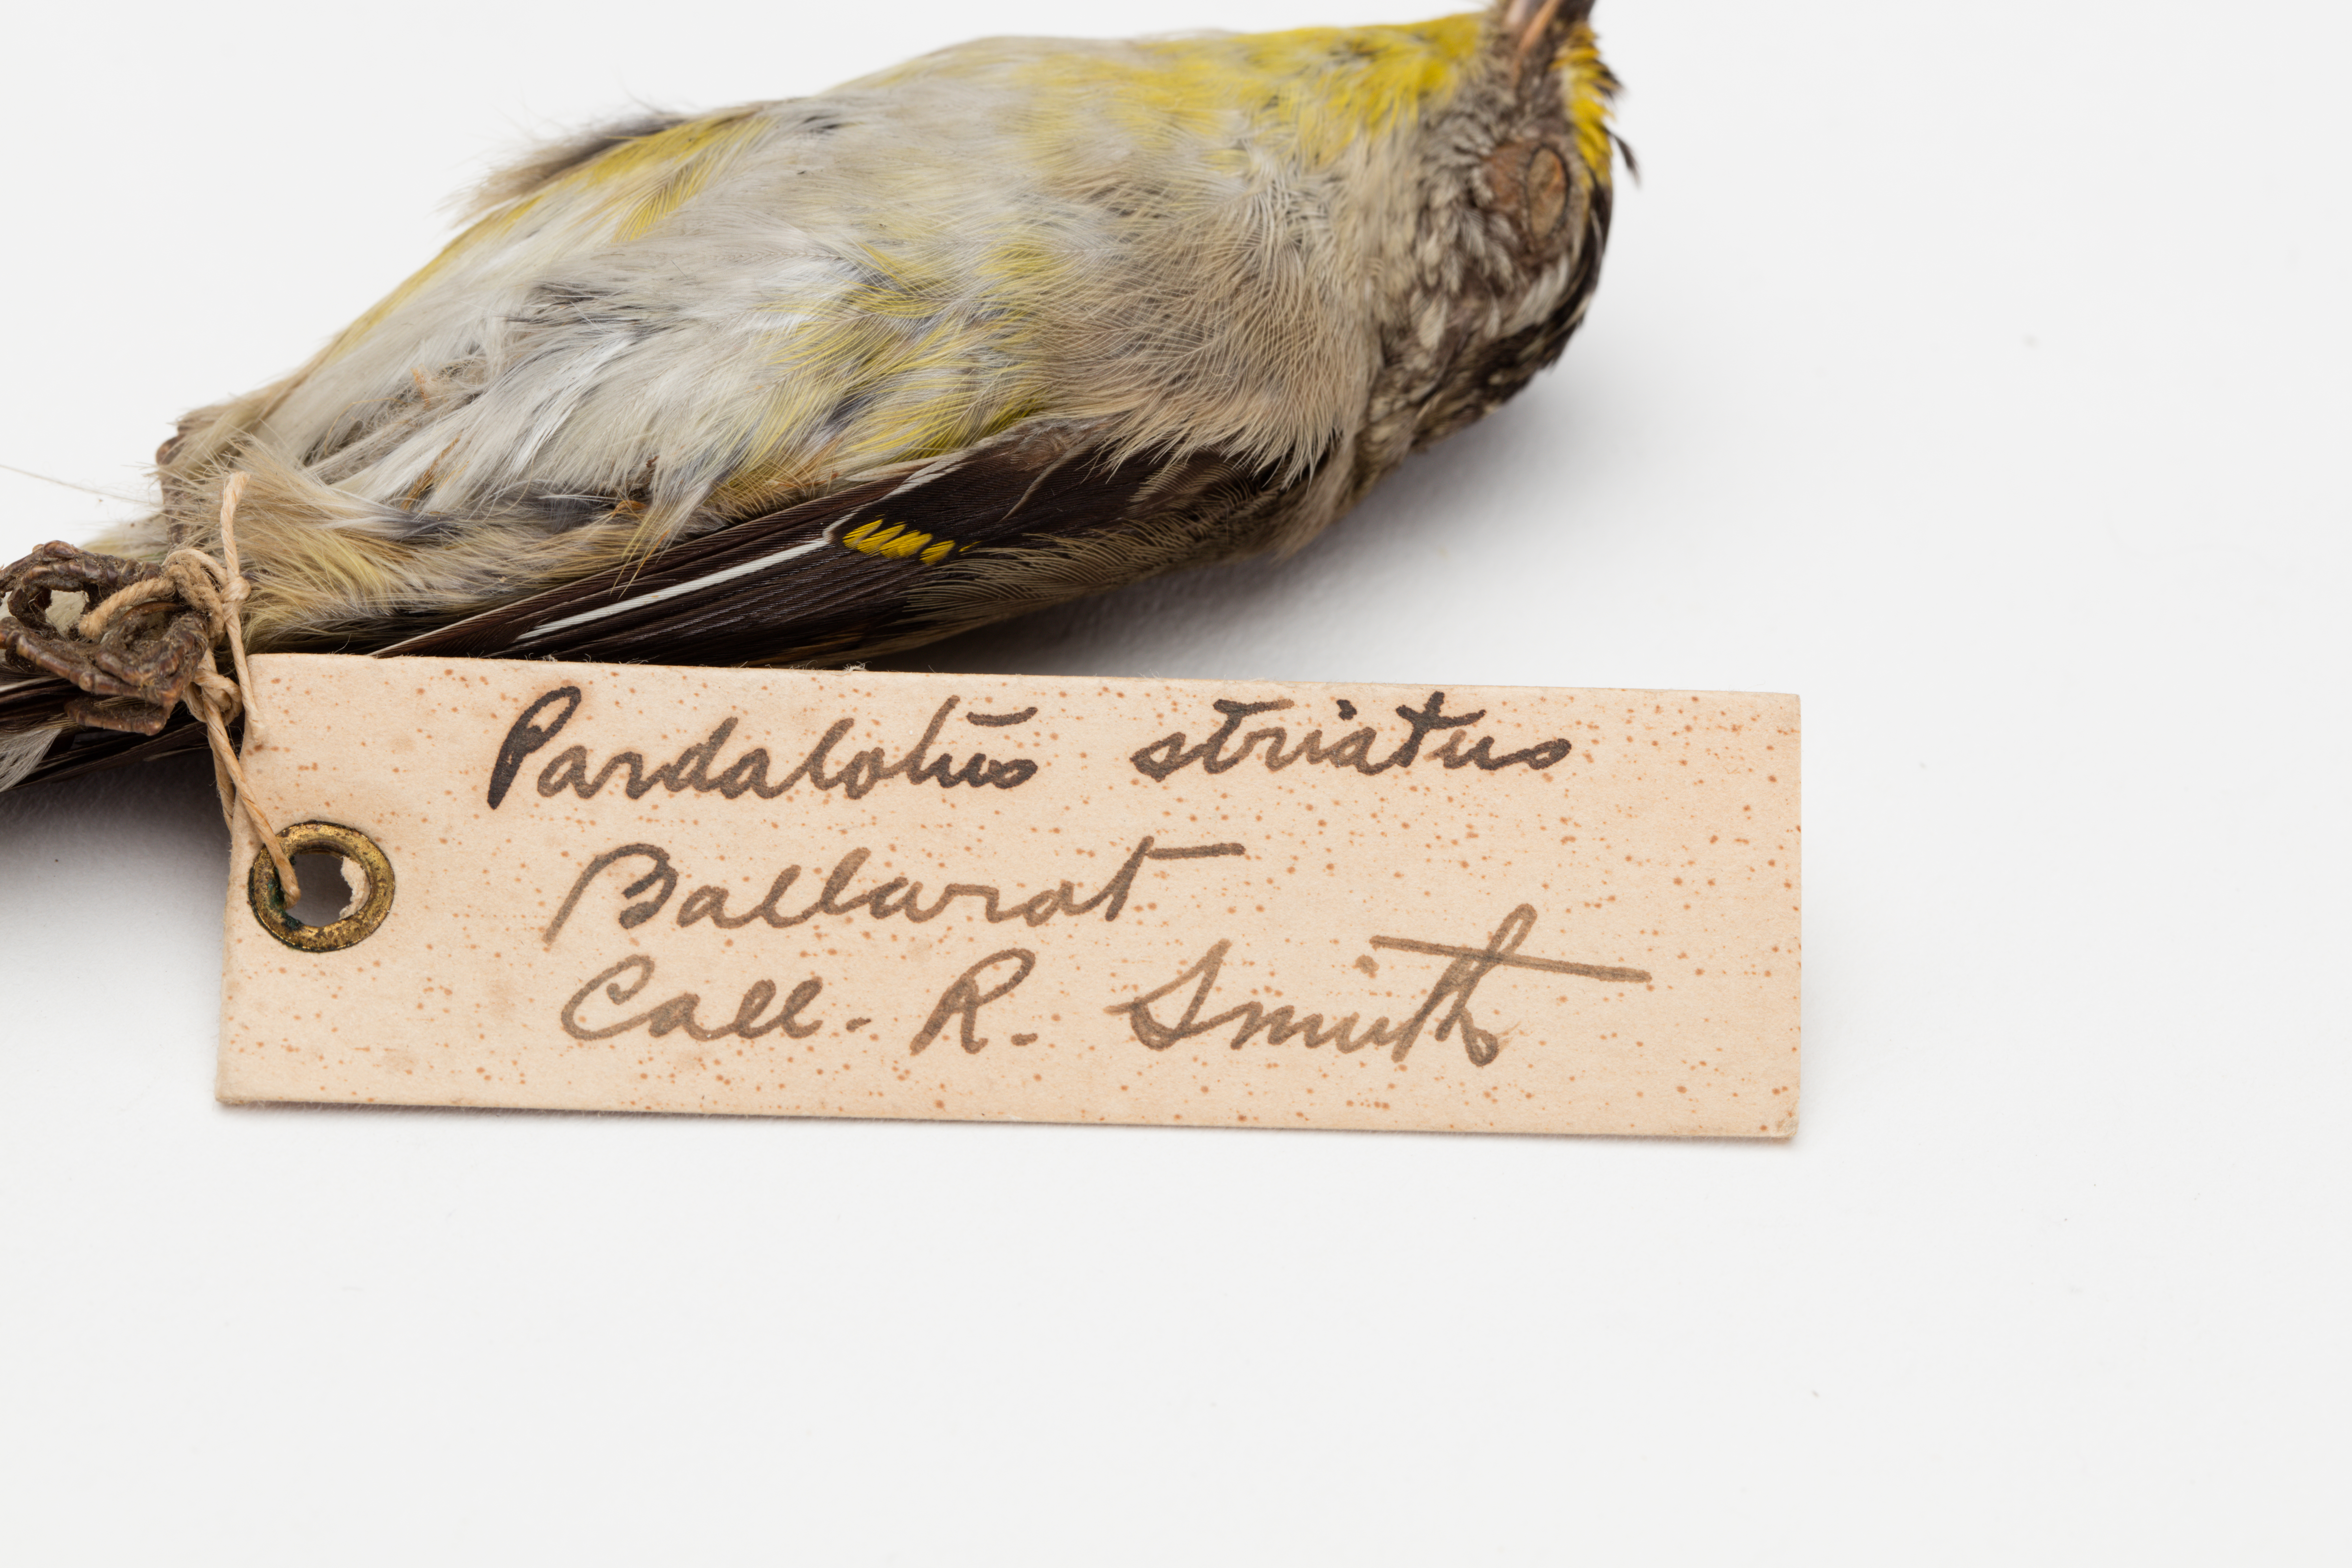 Pardalotus striatus
Ballarat
Coll. R. Smith